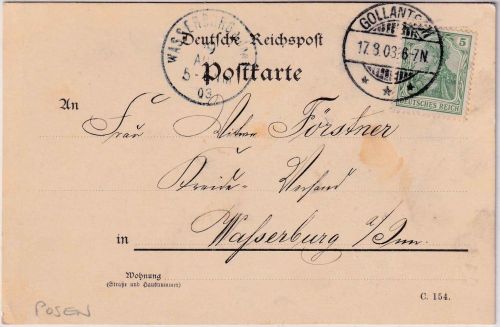 WASSERBURG
5-
03
GOLLANTSCH
17.8.03.6-7N.
* * *
5
DEUTSCHES REICH
Deutsche Reichspost
Postkarte
An
Frau Förstner
Kreide-Versand
in Wasserburg a/Inn.
Wohnung
(Straße und Hausnummer)
C. 154.
POSEN